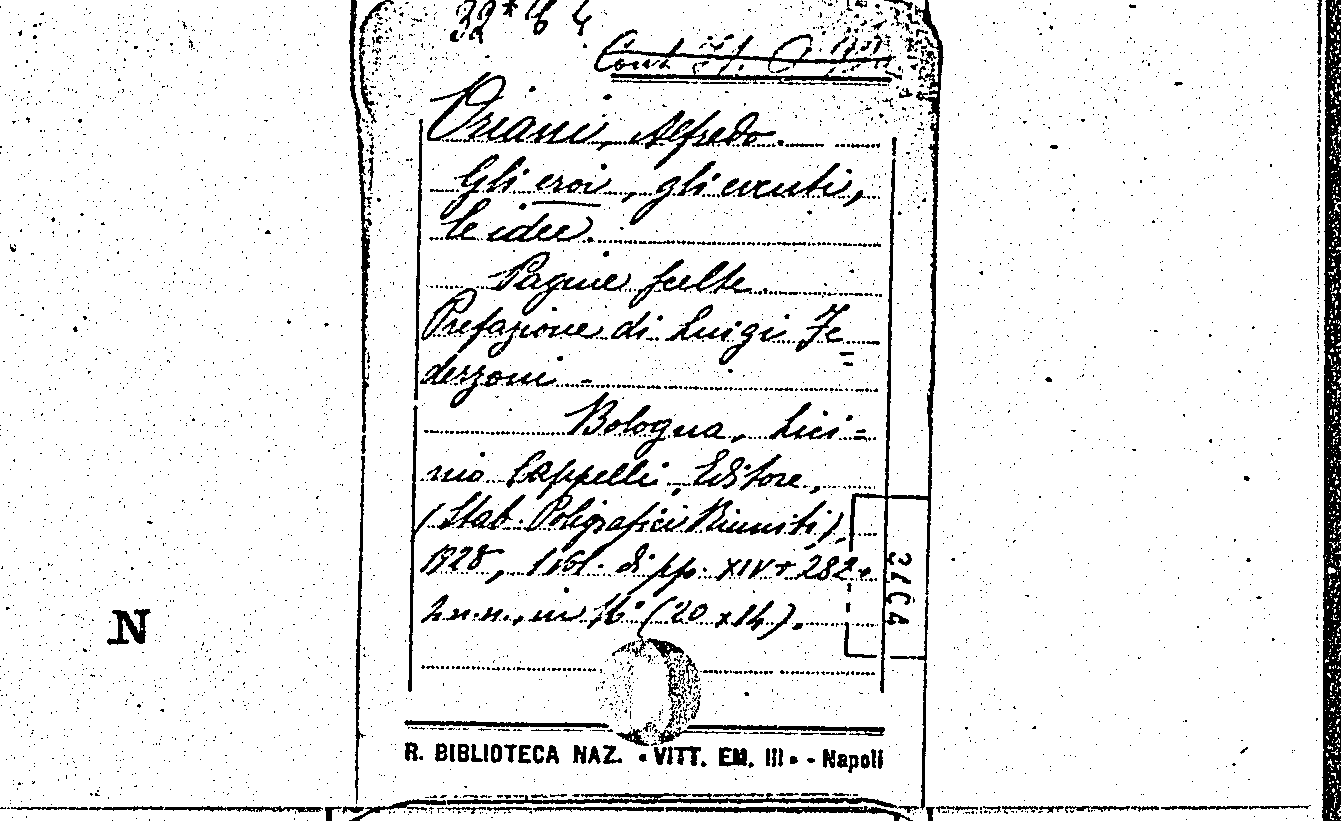 Oriani, Alfredo.
Gli eroi, gli eventi,
le idee.
Pagine scelte.
Prefazione di Luigi Fe=
derzoni -
Bologna, Lici=
nio Cappelli, Editore,
(Stab. Poligrafici Riuniti),
1928, 1 vol. di pp. XIV + 282.
2 n.n., in 16° (20 x 14).
N
R. BIBLIOTECA NAZ. • VITT. EM. III • - Napoli